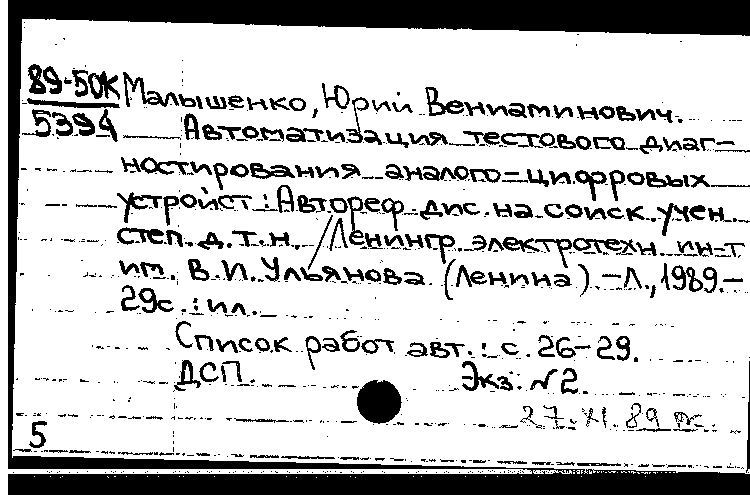 89-50К Малышенко, Юрий Вениаминович.
5394 Автоматизация тестового диаг-
ностирования аналого-цифровых
устройст : Автореф. дис. на соиск. учен
степ. д.т.н. / Ленингр. электротехн. ин-т
им. В.И. Ульянова (Ленина). – Л., 1989. –
29с. : ил.
Список работ авт.: с. 26-29.
ДСП. Экз. №2.
27.XI.89
5